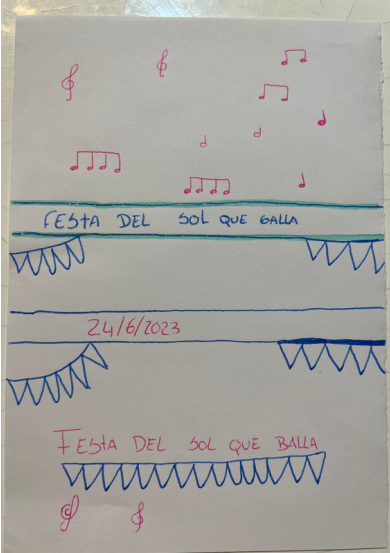 FESTA DEL SOL QUE BALLA
24/6/2023
FESTA DEL SOL QUE BALLA